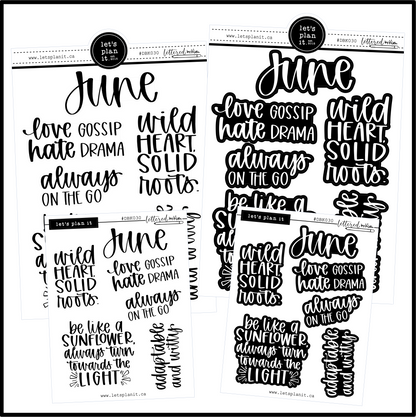 let's
plan
it.
#DBH030
lettered mom
www.letsplanit.ca
June
love GOSSIP
hate DRAMA
always
ON THE GO
wild
HEART.
SOLID
roots.
let's
plan
it.
#DBH030
lettered mom
www.letsplanit.ca
June
love GOSSIP
hate DRAMA
always
ON THE GO
wild
HEART.
SOLID
roots.
let's plan it
#DBH030
lettered mom
June
wild
HEART.
SOLID
roots.
love GOSSIP
hate DRAMA
always
ON THE GO
be like a
SUNFLOWER,
always turn
towards the
LIGHT
adaptable
and witty.
www.letsplanit.ca
let's plan it
#DBH030
lettered mom
June
wild
HEART.
SOLID
roots.
love GOSSIP
hate DRAMA
always
ON THE GO
be like a
SUNFLOWER,
always turn
towards the
LIGHT
adaptable
and witty.
www.letsplanit.ca